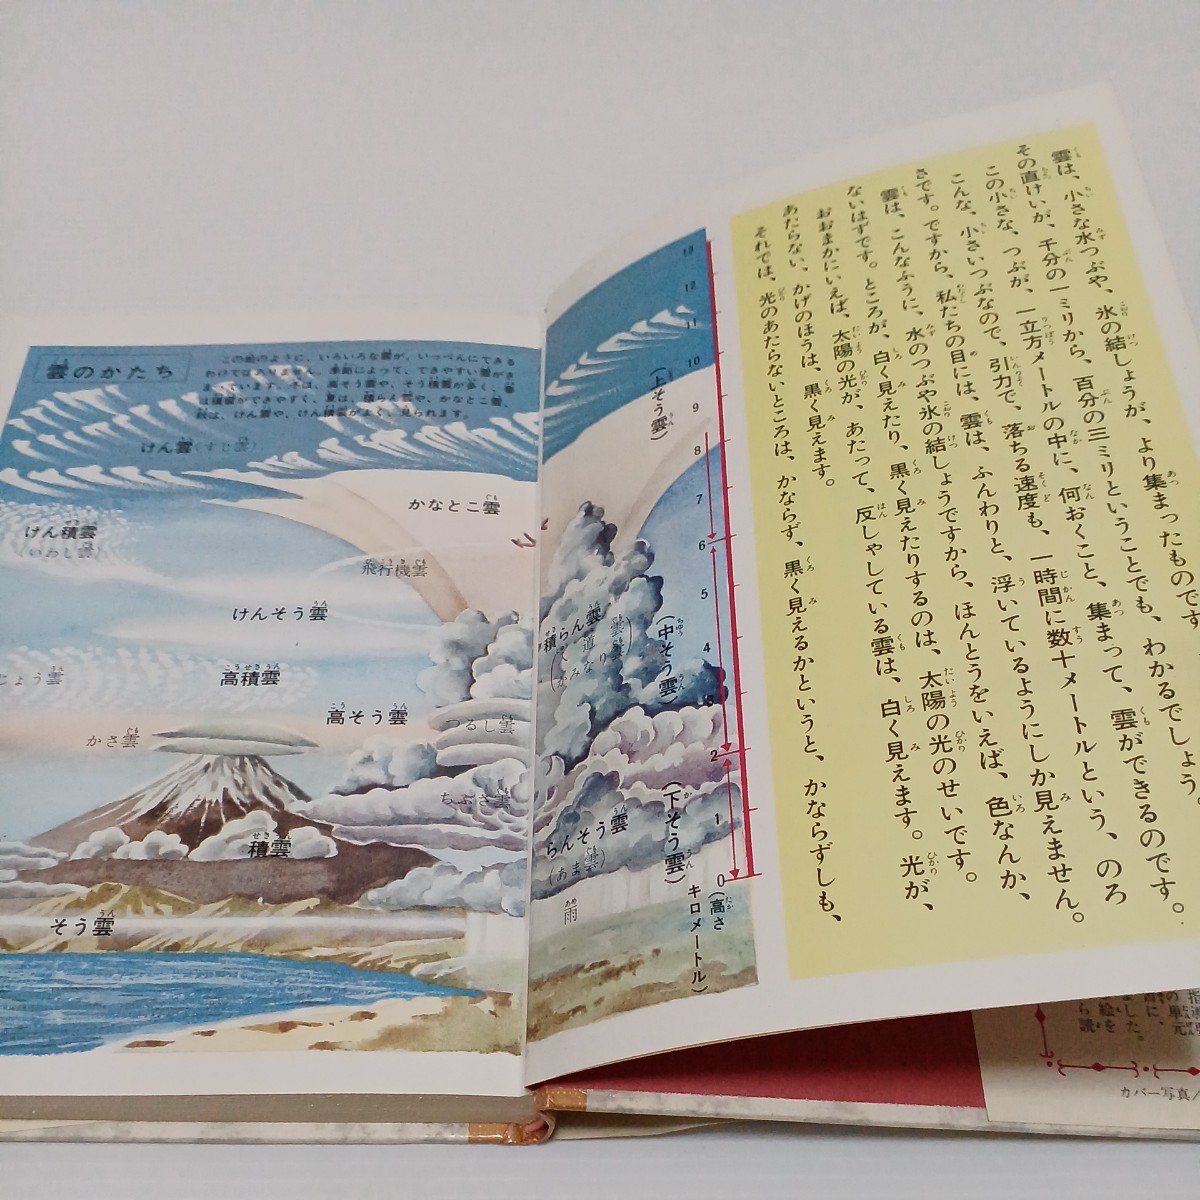 雲のかたち
この絵のように、いろいろな雲が、いっぺんにできる
わけではありません。季節によって、できやすい雲がき
まっています。冬は、高そう雲や、そう積雲が多く、春
は積雲ができやすく、夏は、積らん雲や、かなとこ雲、
秋は、けん雲や、けん積雲がよく、見られます。
けん雲(すじ雲)
かなとこ雲
けん積雲
(いわし雲)
飛行機雲
けんそう雲
じょう雲
高積雲
高そう雲
かさ雲
つるし雲
ちぶさ雲
積雲
そう雲
積らん雲
らんそう雲
(あま雲)
雨
(上そう雲)
(中そう雲)
(下そう雲)
13
12
11
10
9
8
7
6
5
4
3
2
1
0
(高さ
キロメートル)
雲は、小さな水つぶや、氷の結しょうが、より集まったものです
その直けいが、千分の一ミリから、百分の三ミリということでも、わかるでしょう。
この小さな、つぶが、一立方メートルの中に、何おくこと、集まって、雲ができるのです。
こんな、小さいつぶなので、引力で、落ちる速度も、一時間に数十メートルという、のろ
さです。ですから、私たちの目には、雲は、ふんわりと、浮いているようにしか見えません。
雲は、こんなふうに、水のつぶや氷の結しょうですから、ほんとうをいえば、色なんか、
ないはずです。ところが、白く見えたり、黒く見えたりするのは、太陽の光のせいです。
おおまかにいえば、太陽の光が、あたって、反しゃしている雲は、白く見えます。光が、
あたらない、かげのほうは、黒く見えます。
それでは、光のあたらないところは、かならず、黒く見えるかというと、かならずしも、
の単元
した。
絵を
ら読
カバー写真/